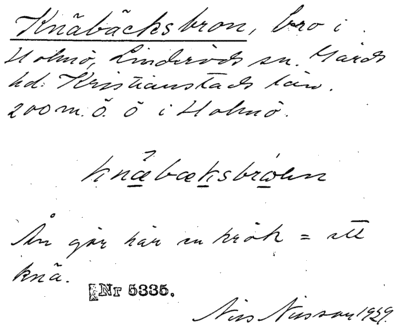 Knäbäcksbron, bro i
Holmö, Linderöds sn. Gärds
hd. Kristianstads län.
200 m. ö. ö i Holmö.
knäbæksbroen
Ån gör här en krök = ett
knä.
Nr 5335.
Nils Nilsson 1929.